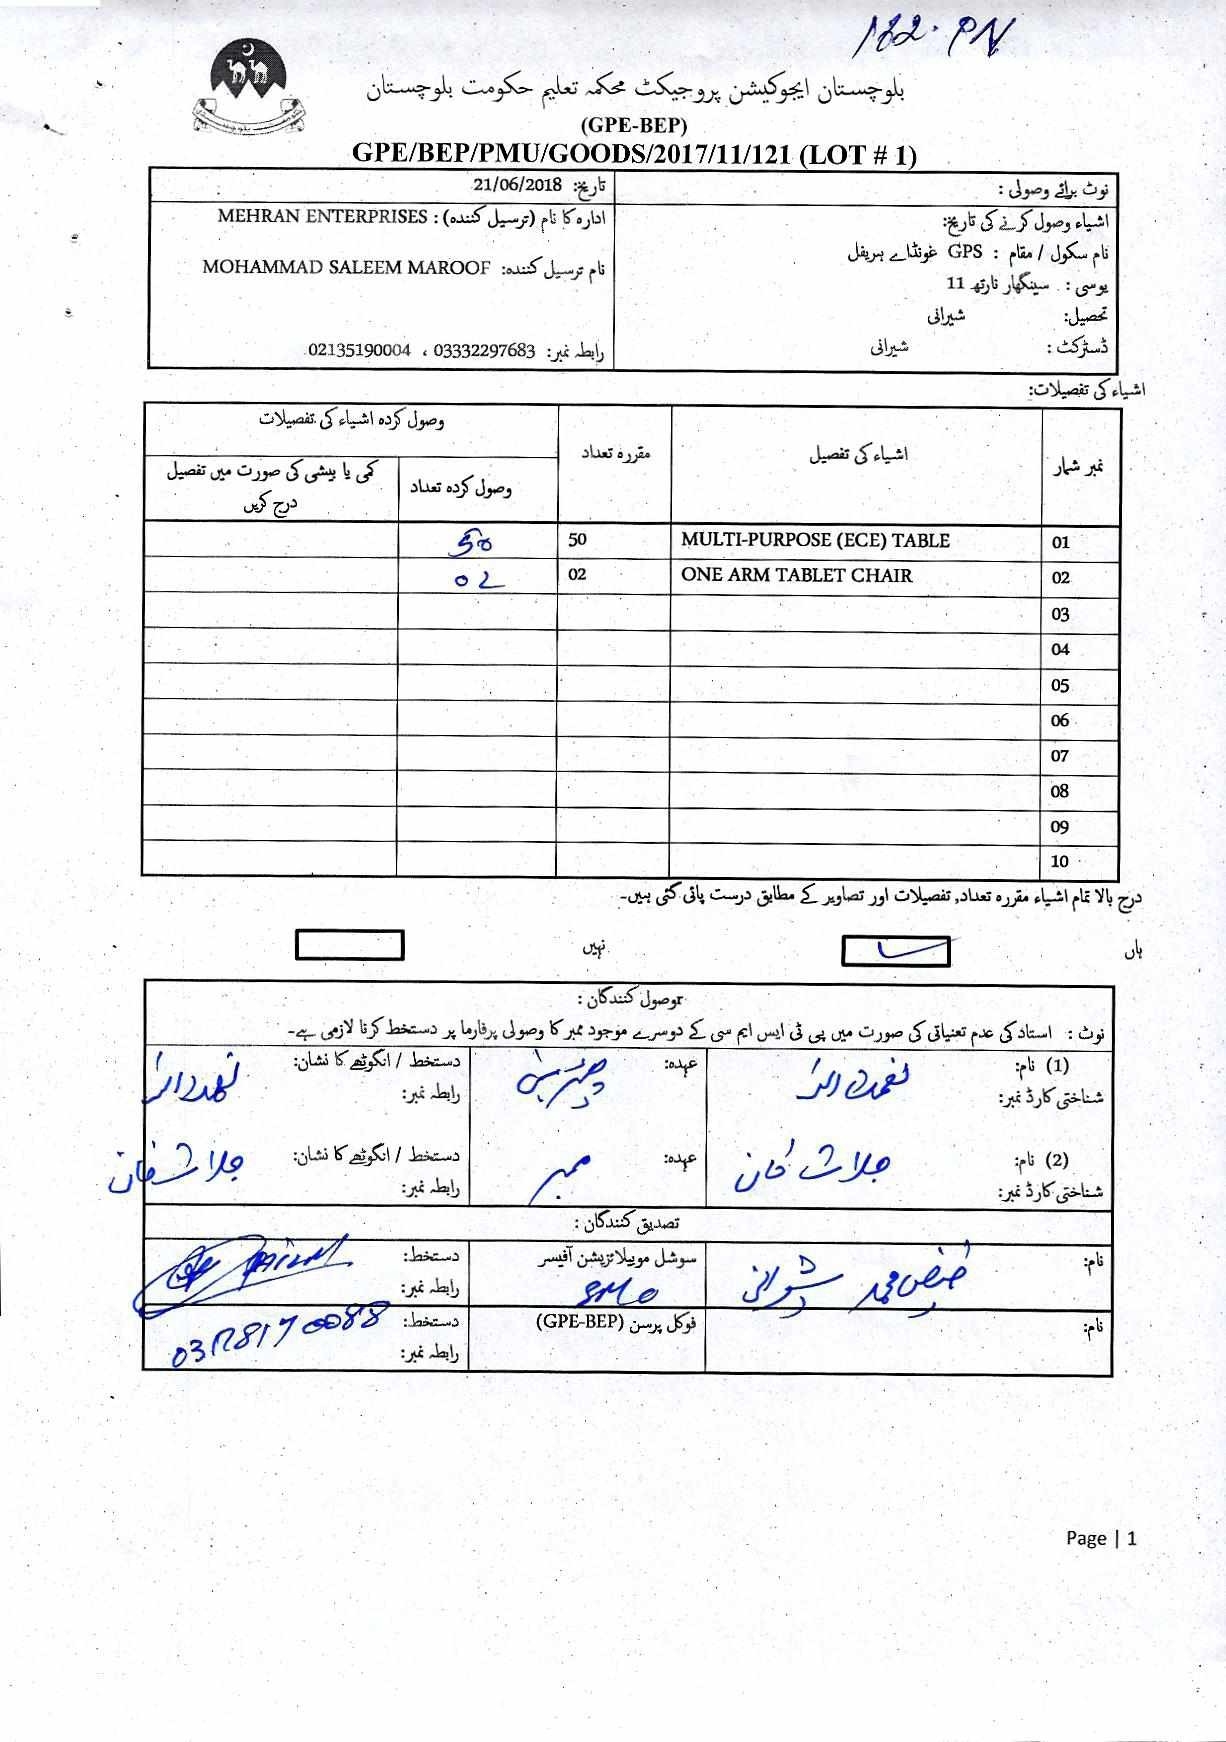 182. PN
بلوچستان ایجوکیشن پروجیکٹ محکمہ تعلیم حکومت بلوچستان
(GPE-BEP)
GPE/BEP/PMU/GOODS/2017/11/121 (LOT # 1)
نوٹ برائے وصولی :
تاریخ: 21/06/2018
اشیاء وصول کرنے کی تاریخ:
ادارہ کا نام (ترسیل کنندہ) : MEHRAN ENTERPRISES
نام سکول / مقام : GPS غونڈاے ہریفل
نام ترسیل کنندہ: MOHAMMAD SALEEM MAROOF
یوسی : سینگھار نارتھ 11
تحصیل: شیرانی
ڈسٹرکٹ : شیرانی
رابطہ نمبر: 03332297683 ، 02135190004
اشیاء کی تفصیلات:
نمبر شمار اشیاء کی تفصیل مقررہ تعداد وصول کردہ اشیاء کی تفصیلات
وصول کردہ تعداد کمی یا بیشی کی صورت میں تفصیل درج کریں
01 MULTI-PURPOSE (ECE) TABLE 50 50
02 ONE ARM TABLET CHAIR 02 02
03
04
05
06
07
08
09
10
درج بالا تمام اشیاء مقررہ تعداد, تفصیلات اور تصاویر کے مطابق درست پائی گئی ہیں۔
ہاں نہیں
وصول کنندگان :
نوٹ : استاد کی عدم تعنیاتی کی صورت میں پی ٹی ایس ایم سی کے دوسرے موجود ممبر کا وصولی پرفارما پر دستخط کرنا لازمی ہے۔
(1) نام: نعمت اللہ عہدہ: دستخط / انگوٹھے کا نشان: نعمت اللہ
شناختی کارڈ نمبر: رابطہ نمبر:
(2) نام: خان عہدہ: ممبر دستخط / انگوٹھے کا نشان: خان
شناختی کارڈ نمبر: رابطہ نمبر:
تصدیق کنندگان :
نام: فیض محمد شیرانی سوشل موبیلائزیشن آفیسر SMO دستخط:
رابطہ نمبر:
نام: فوکل پرسن (GPE-BEP) دستخط:
رابطہ نمبر:
Page | 1